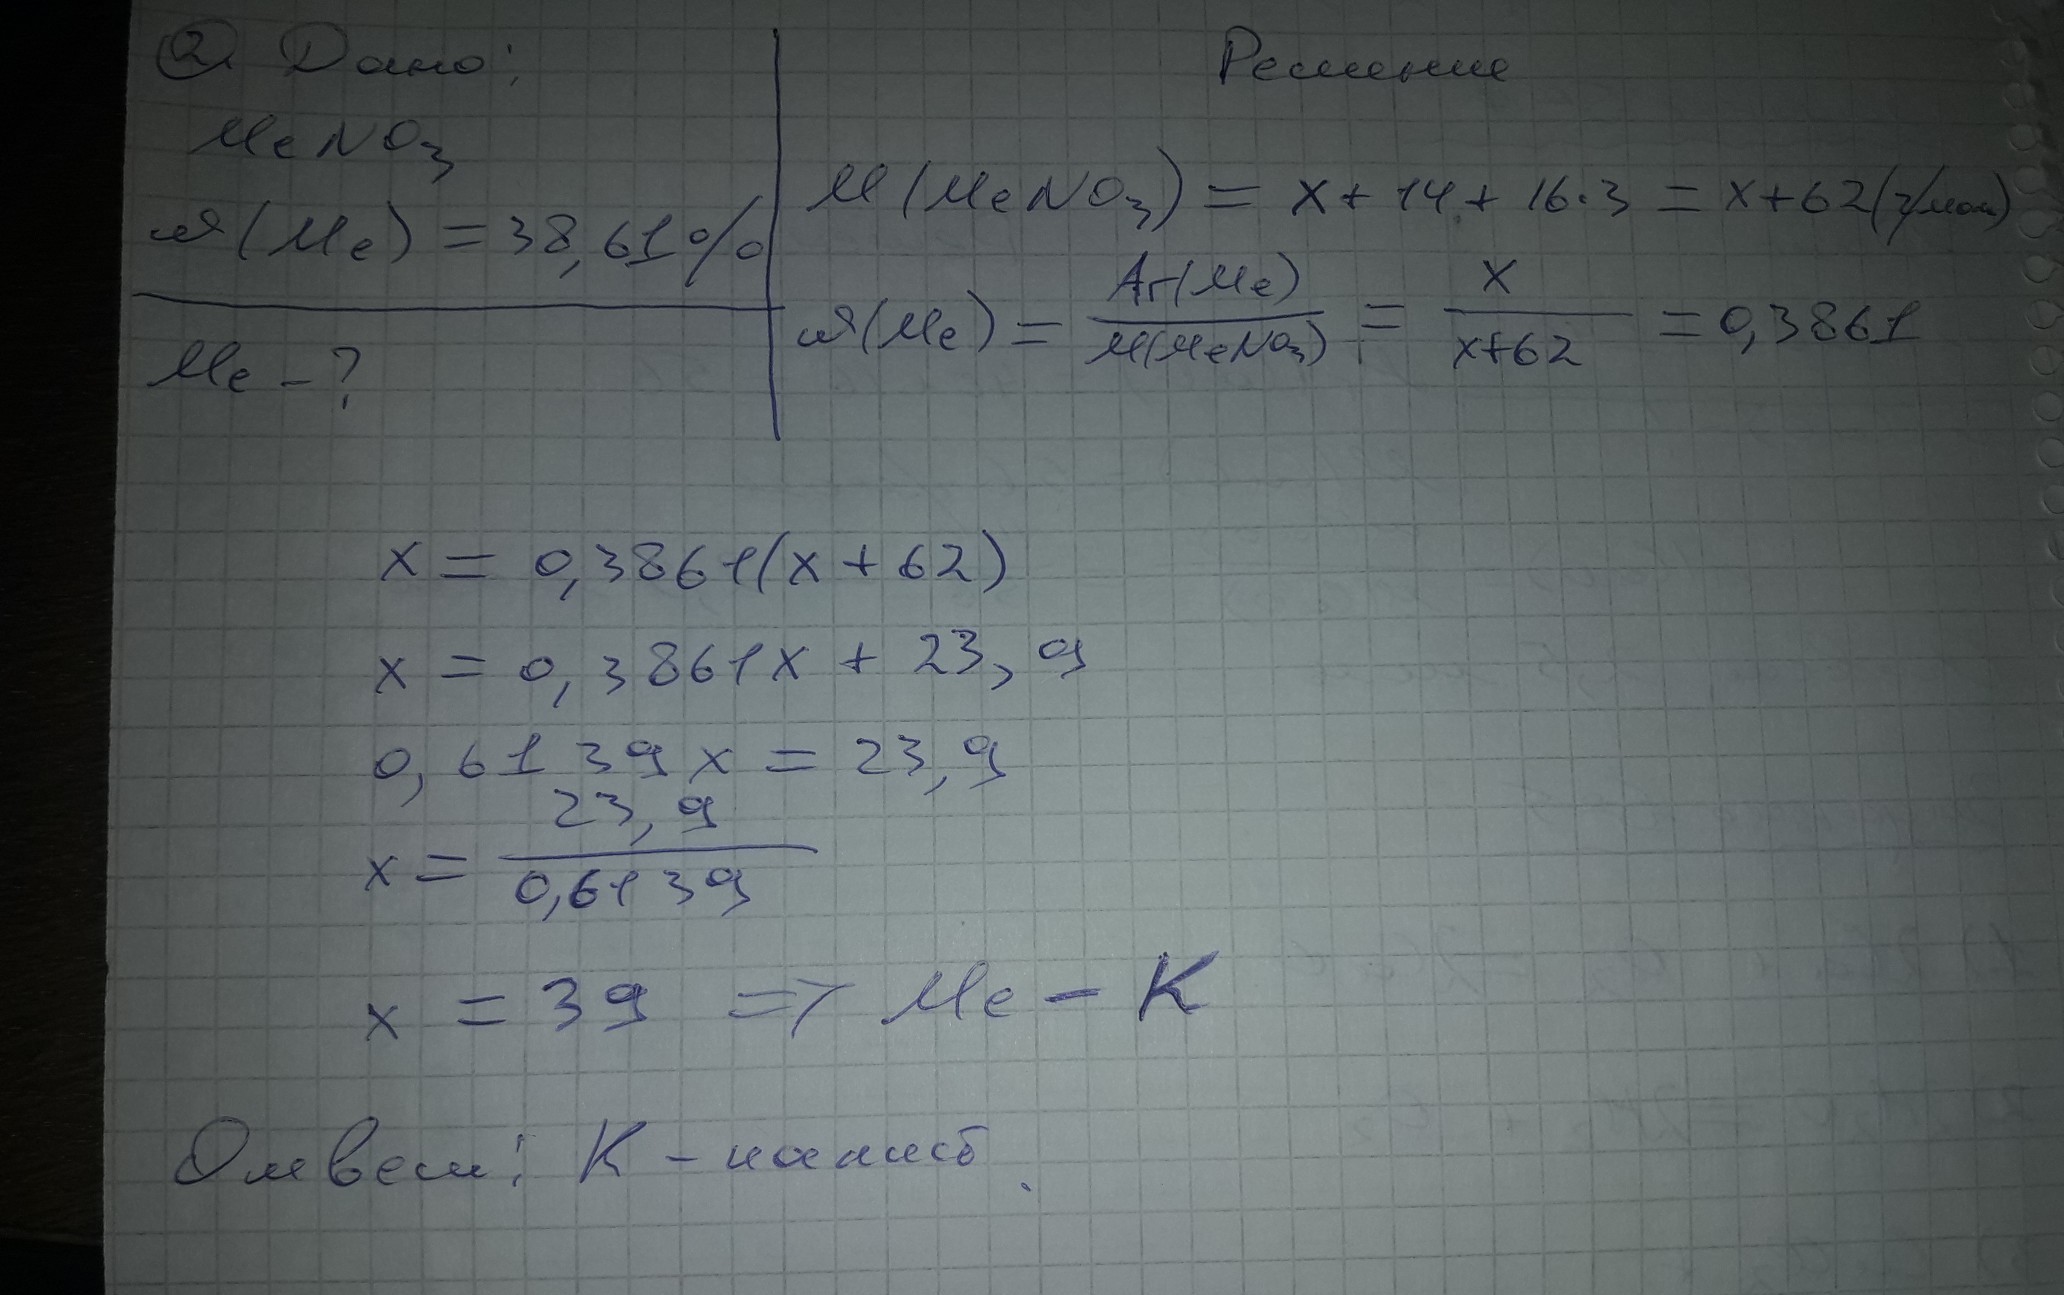 2. Дано:
MeNO₃
ω(Me) = 38,61%
Me - ?
Решение
M(MeNO₃) = x + 14 + 16·3 = x + 62 (г/моль)
ω(Me) = Ar(Me) / M(MeNO₃) = x / x+62 = 0,3861
x = 0,3861(x + 62)
x = 0,3861x + 23,9
0,6139x = 23,9
x = 23,9 / 0,6139
x = 39 => Me - K
Ответ: K - калий.